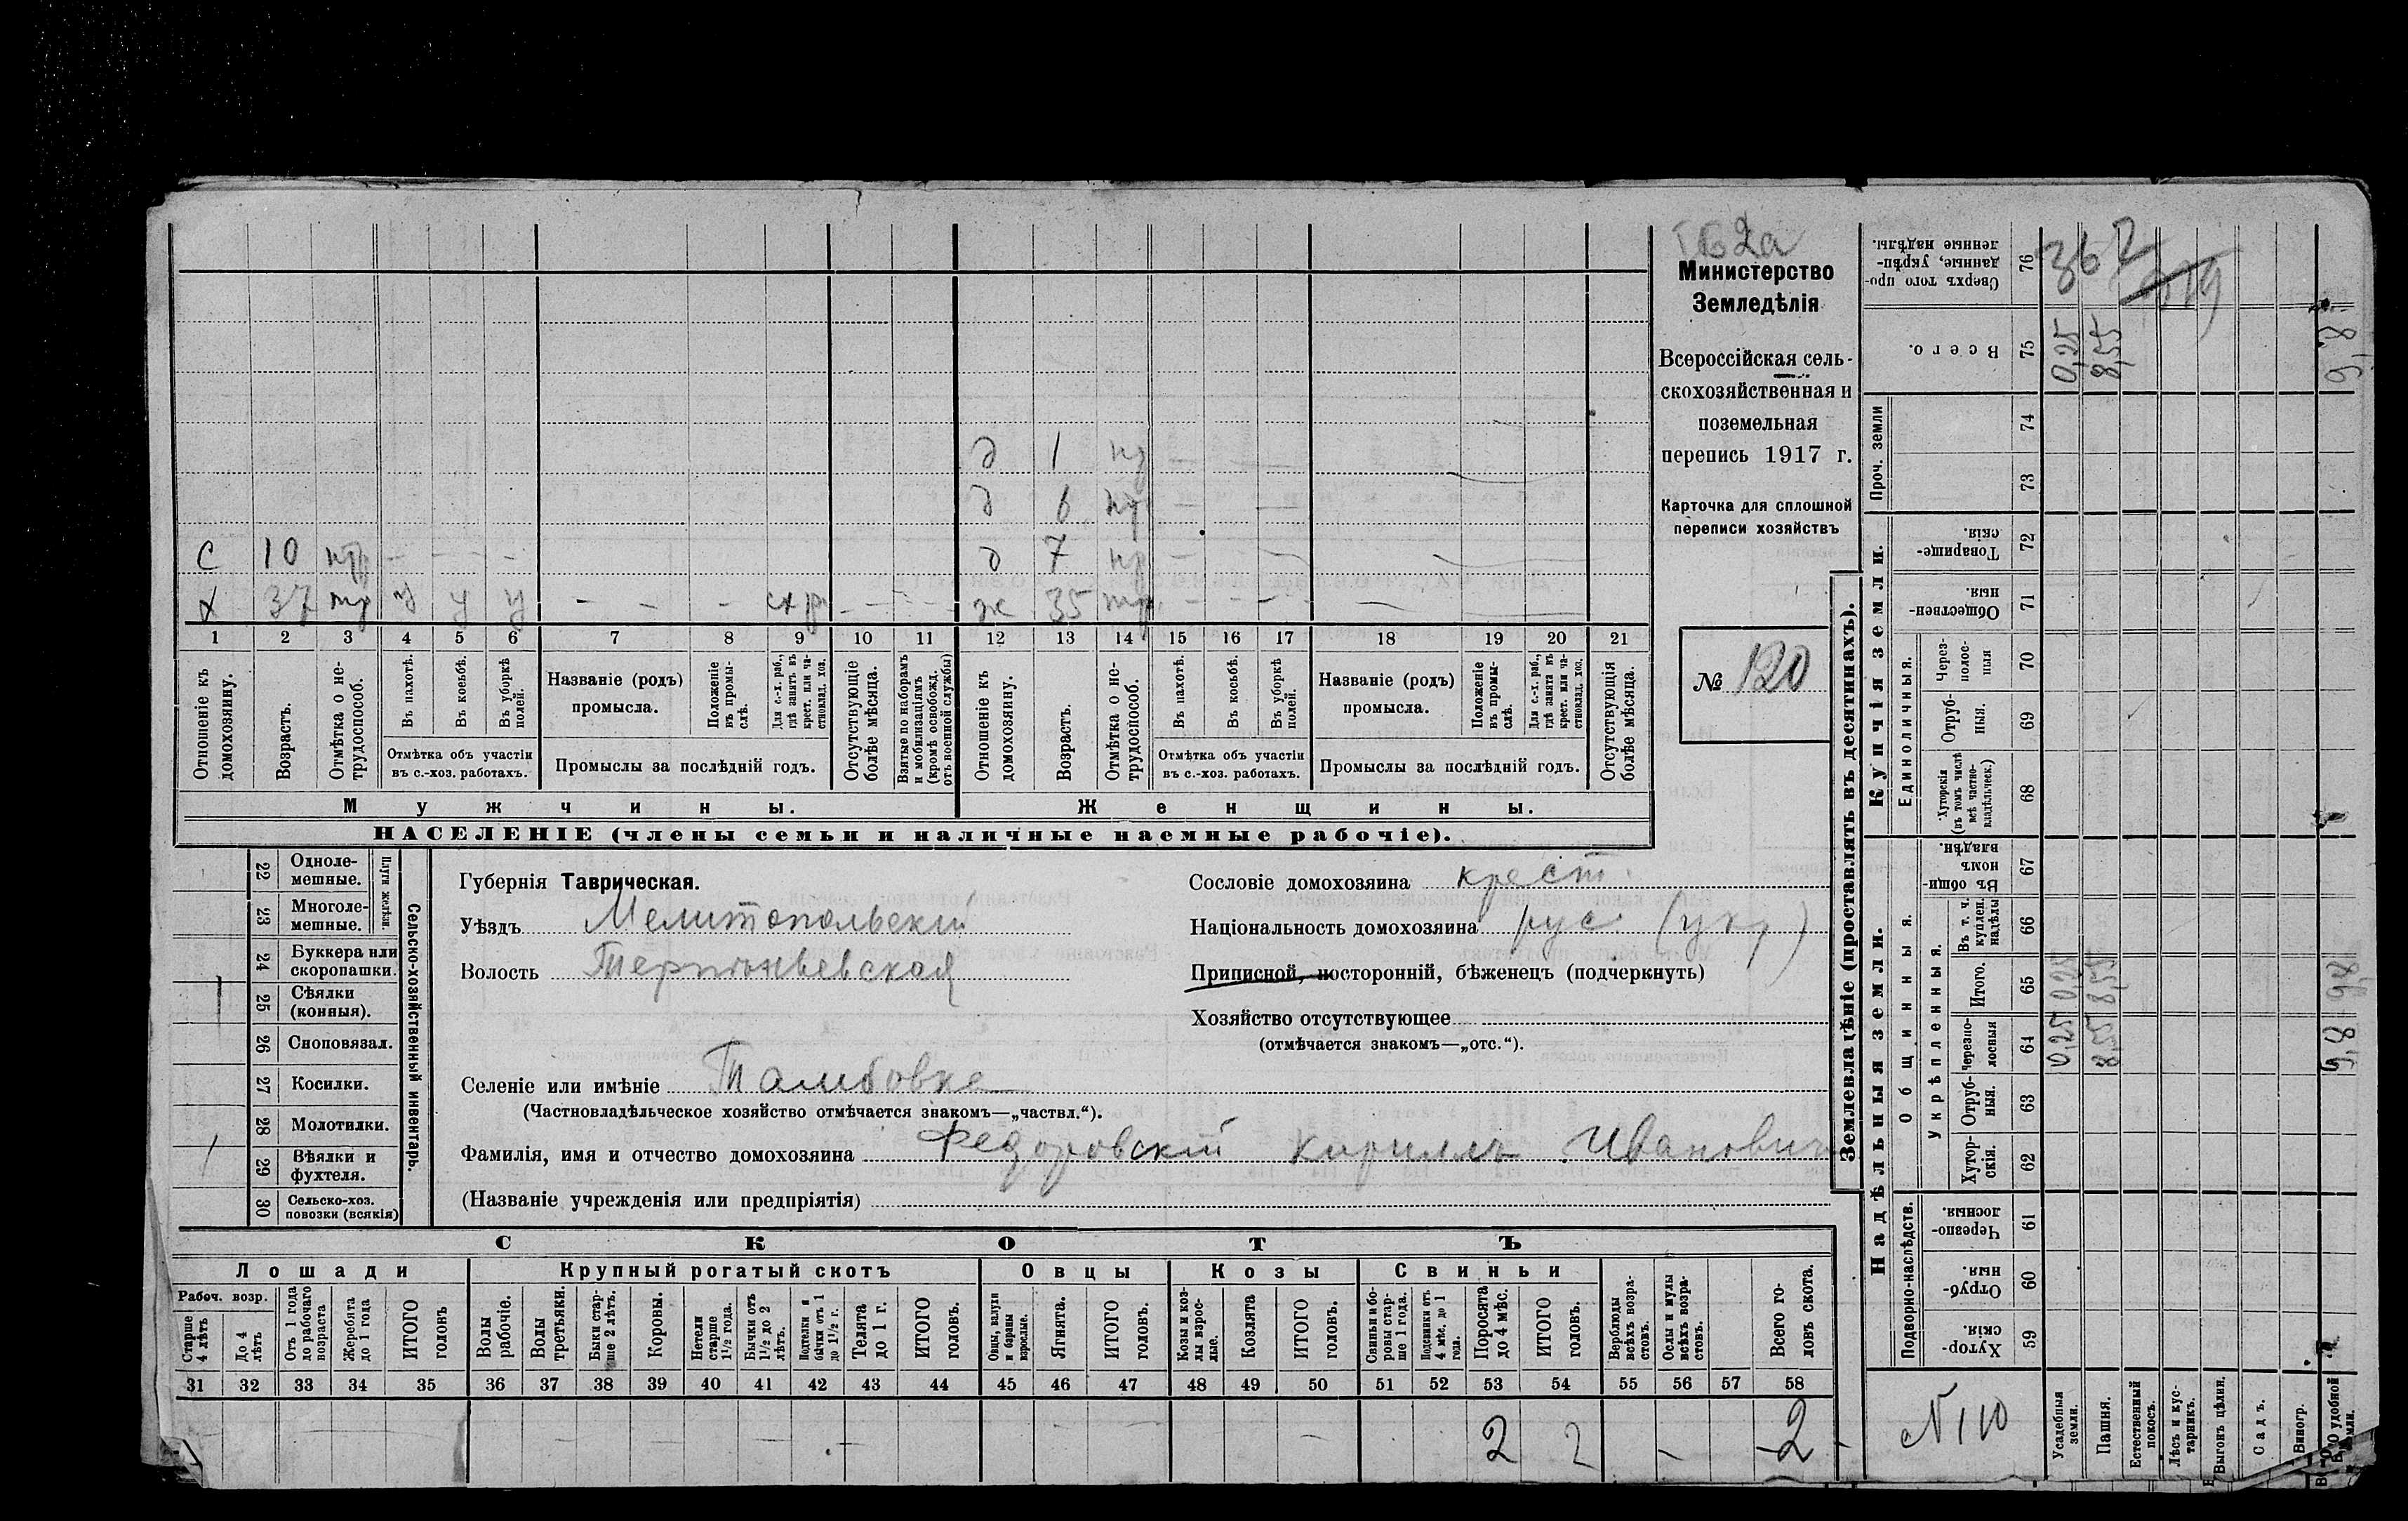 Министерство
Земледѣлія
Всероссійская сель-
скохозяйственная и
поземельная
перепись 1917 г.
Карточка для сплошной
переписи хозяйствъ
№ 120
д 1
д 6
С 10 д 7
х 37 у у у ж 35
1 2 3 4 5 6 7 8 9 10 11 12 13 14 15 16 17 18 19 20 21
Отношеніе къ домохозяину.
Возрастъ.
Отмѣтка о не-трудоспособ.
Въ пахотѣ.
Въ косьбѣ.
Въ уборкѣ полей.
Отмѣтка объ участіи
въ с.-хоз. работахъ.
Названіе (родъ)
промысла.
Положеніе въ промы-слѣ.
Для с.-х. раб., гдѣ занятъ въ крест. или ча-стновлад. хоз.
Промыслы за послѣдній годъ.
Отсутствующіе болѣе мѣсяца.
Взятые по наборамъ и мобилизаціямъ (кромѣ освобожд. отъ военной службы)
Отношеніе къ домохозяину.
Возрастъ.
Отмѣтка о не-трудоспособ.
Въ пахотѣ.
Въ косьбѣ.
Въ уборкѣ полей.
Отмѣтка объ участіи
въ с.-хоз. работахъ.
Названіе (родъ)
промысла.
Положеніе въ промы-слѣ.
Для с.-х. раб., гдѣ занята въ крест. или ча-стновлад. хоз.
Промыслы за послѣдній годъ.
Отсутствующія болѣе мѣсяца.
Мужчины. Женщины.
НАСЕЛЕНІЕ (члены семьи и наличные наемные рабочіе).
22 Одноле-мешные.
23 Многоле-мешные.
Плуги желѣзн.
24 Буккера или скоропашки.
25 Сѣялки (конныя).
26 Сноповязал.
27 Косилки.
28 Молотилки.
29 Вѣялки и фухтеля.
30 Сельско-хоз. повозки (всякія)
Сельско-хозяйственный инвентарь.
Губернія Таврическая.
Уѣздъ Мелитопольскій
Волость Терпѣньевская
Селеніе или имѣніе Тамбовка
(Частновладѣльческое хозяйство отмѣчается знакомъ—„частвл.“).
Фамилія, имя и отчество домохозяина Федоровскій Кириллъ Ивановичъ
(Названіе учрежденія или предпріятія)
Сословіе домохозяина крест.
Національность домохозяина рус. (укр)
Приписной, посторонній, бѣженецъ (подчеркнуть)
Хозяйство отсутствующее
(отмѣчается знакомъ—„отс.“).
СКОТЪ
Лошади Крупный рогатый скотъ Овцы Козы Свиньи
Рабоч. возр.
Старше 4 лѣтъ
До 4 лѣтъ
Отъ 1 года до рабочаго возраста
Жеребята до 1 года
ИТОГО головъ
Волы рабочіе.
Волы третьяки.
Быки стар-ше 2 лѣтъ.
Коровы.
Нетели старше 1½ года.
Бычки отъ 1½ до 2 лѣтъ.
Подтелки и бычки отъ 1 до 1½ г.
Телята до 1 г.
ИТОГО головъ.
Овцы, валухи и бараны взрослые.
Ягнята.
ИТОГО головъ.
Козы и коз-лы взрос-лые.
Козлята
ИТОГО головъ.
Свиньи и бо-ровы стар-ше 1 года.
Подсвинки отъ 4 мѣс. до 1 года.
Поросята до 4 мѣс.
ИТОГО головъ.
Верблюды всѣхъ возра-стовъ.
Ослы и мулы всѣхъ возра-стовъ.
Всего го-ловъ скота.
31 32 33 34 35 36 37 38 39 40 41 42 43 44 45 46 47 48 49 50 51 52 53 54 55 56 57 58
2 2 2
Землевладѣніе (проставлять въ десятинахъ).
Сверхъ того про-данные, укрѣп-ленные надѣлы. 76 362
Всего. 75 0,25 8,55
Проч. земли 74 73
Купчія земли.
Товарище-скія. 72
Обществен-ныя. 71
Единоличныя.
Через-полос-ныя 70
Отруб-ныя. 69
Хуторскія (въ томъ числѣ всѣ частно-владѣльческ.) 68
Надѣльныя земли.
Общинныя.
Въ общи-номъ владѣн. 67
Укрѣпленныя.
Въ т. ч. куплен. надѣлы 66
Итого. 65 0,25 8,55
Черезпо-лосныя 64 0,25 8,55
Отруб-ныя. 63
Хутор-скія. 62
Подворно-наслѣдств.
Черезпо-лосныя. 61
Отруб-ныя. 60
Хутор-скія. 59
Усадебныя земли.
Пашня.
Естественный покосъ.
Лѣсъ и кус-тарникъ.
Выгонъ цѣлин.
Садъ.
Виногр.